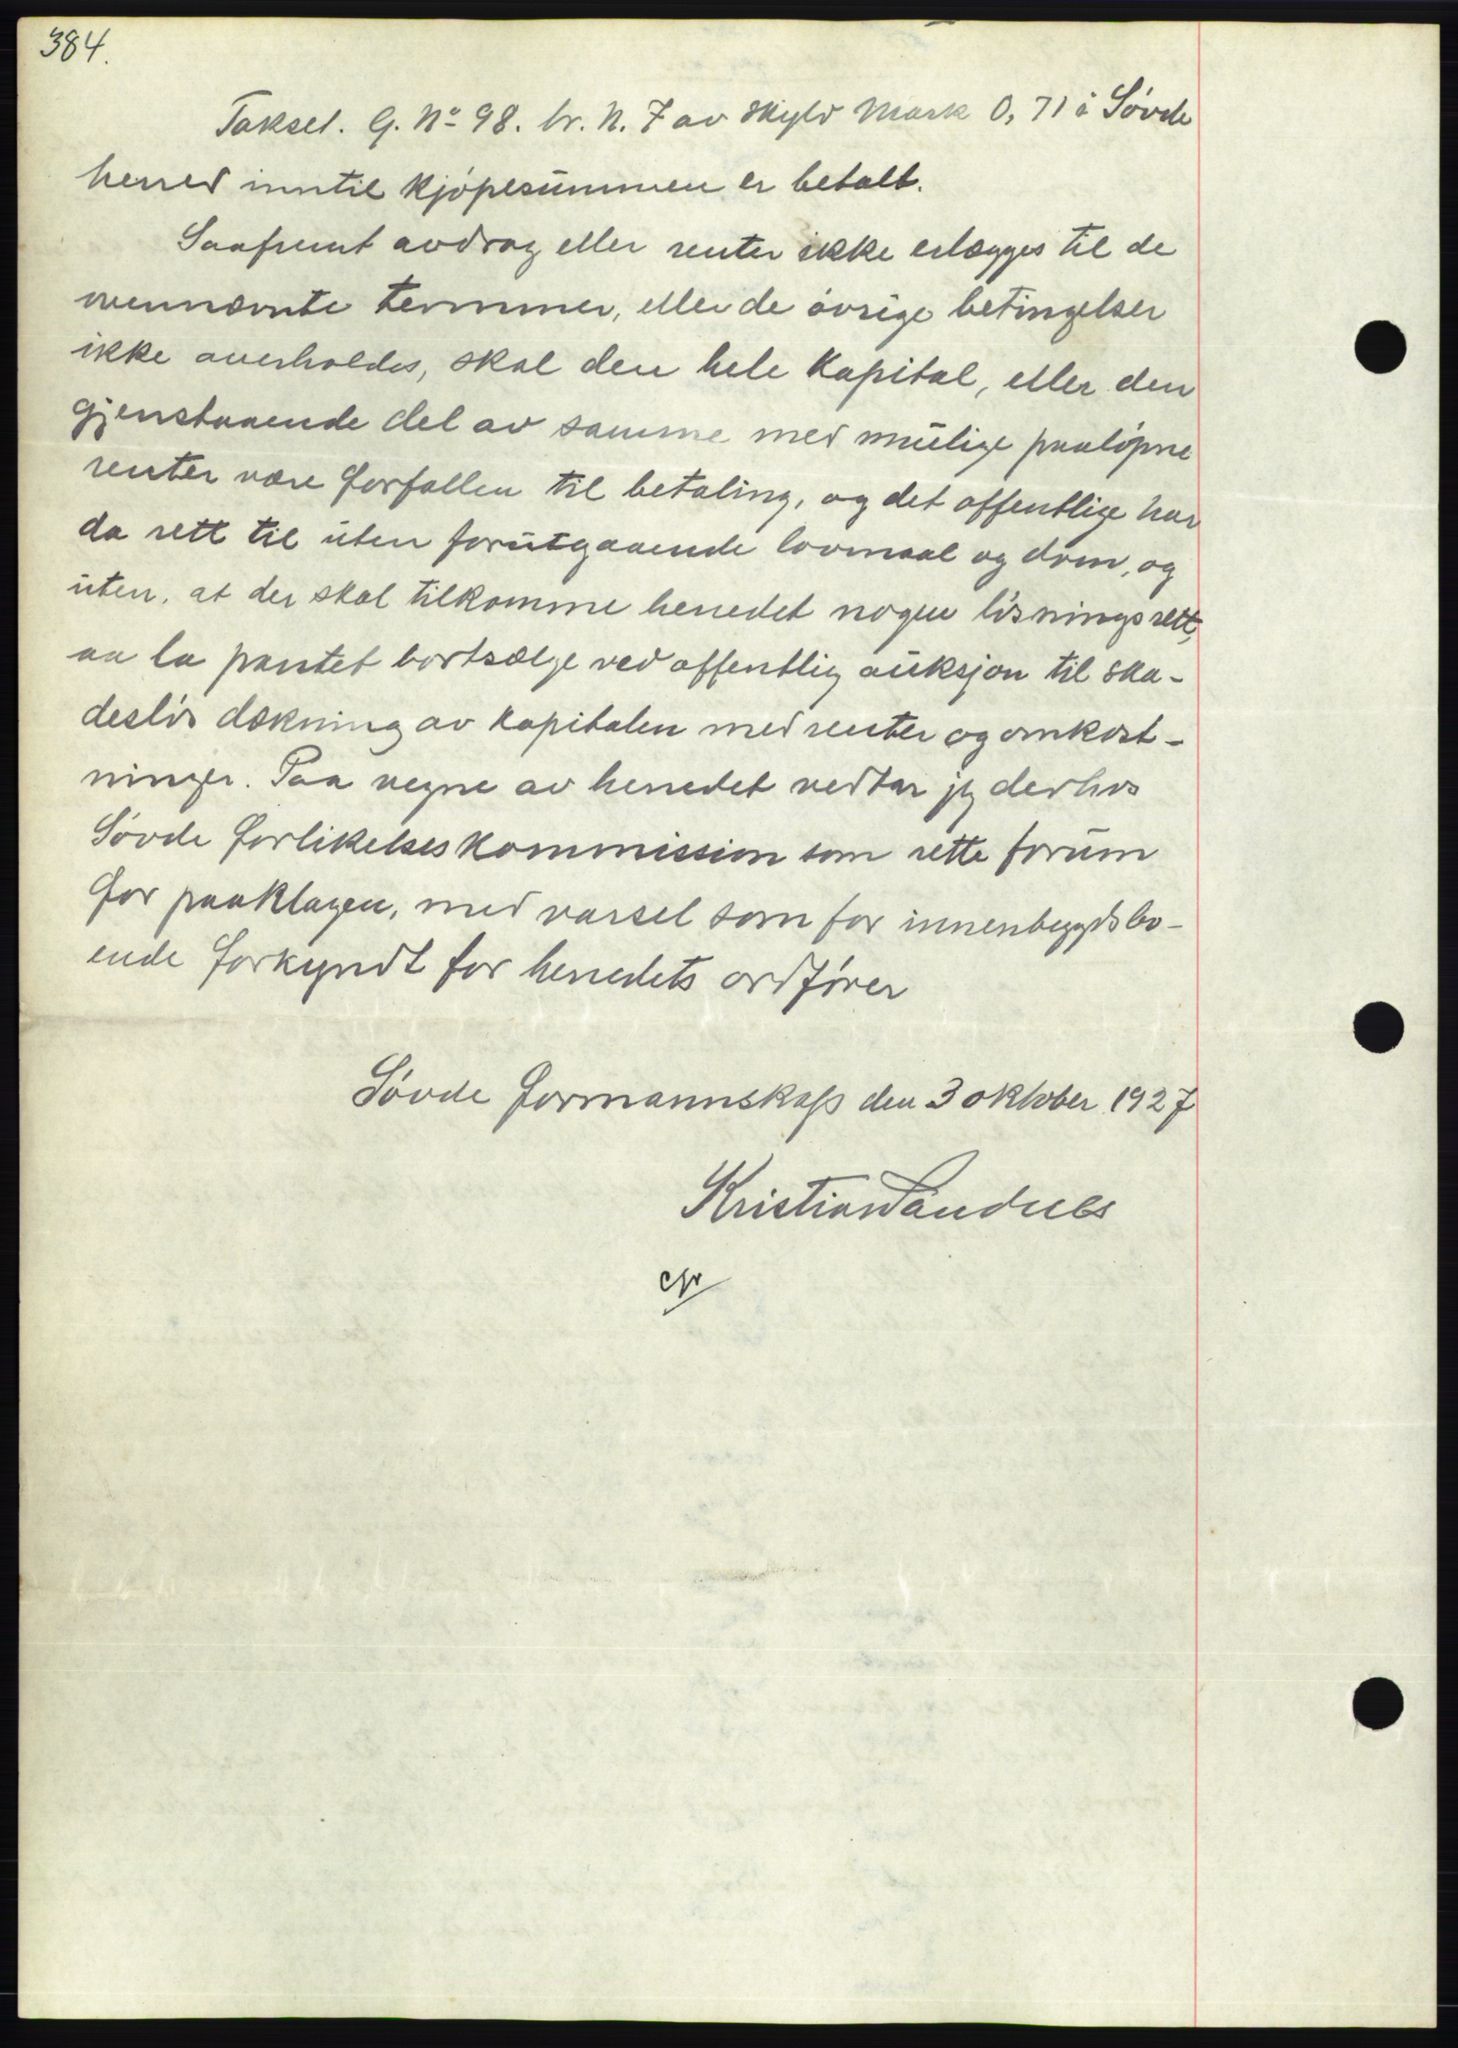 384.
Taksel. G. No 98. br. N. 7 av skyld Mark 0,71 i Søvde
herred inntil kjøpesummen er betalt.
Saafremt avdrag eller renter ikke erlægges til de
ovennævnte terminer, eller de øvrige betingelser
ikke overholdes, skal den hele Kapital, eller den
gjenstaaende del av samme med mulige paaløpne
renter være forfallen til betaling, og det offentlige har
da rett til uten forutgaaende lovmaal og dom, og
uten, at der skal tilkomme herredet nogen løsningsrett,
aa la pantet bortsælge ved offentlig auksjon til ska-
desløs dækning av kapitalen med renter og omkost-
ninger. Paa vegne av herredet vedtar jeg derhos
Søvde forlikelseskommission som rette forum
for paaklagen, med varsel som for innenbygdsbo-
ende forkyndt for herredets ordfører
Søvde formannskap den 3 oktober 1927
Kristian Sandnes